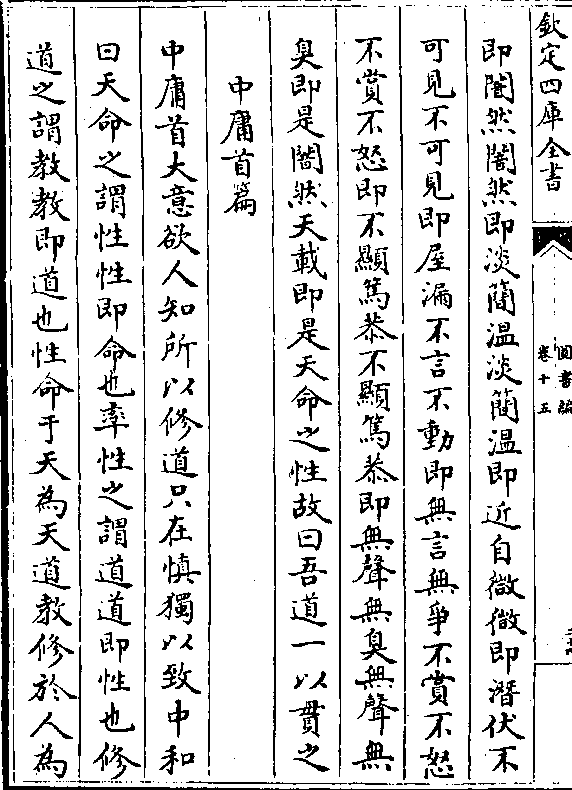 欽定四庫全書
圖書編
卷十五
即闇然闇然即淡簡温淡簡温即近自微微即潛伏不
可見不可見即屋漏不言不動即無言無爭不賞不怒
不賞不怒即不顯篤恭不顯篤恭即無聲無臭無聲無
臭即是闇然天載即是天命之性故曰吾道一以貫之
中庸首篇
中庸首大意欲人知所以修道只在慎獨以致中和
曰天命之謂性性即命也率性之謂道道即性也修
道之謂教教即道也性命于天為天道教修於人為